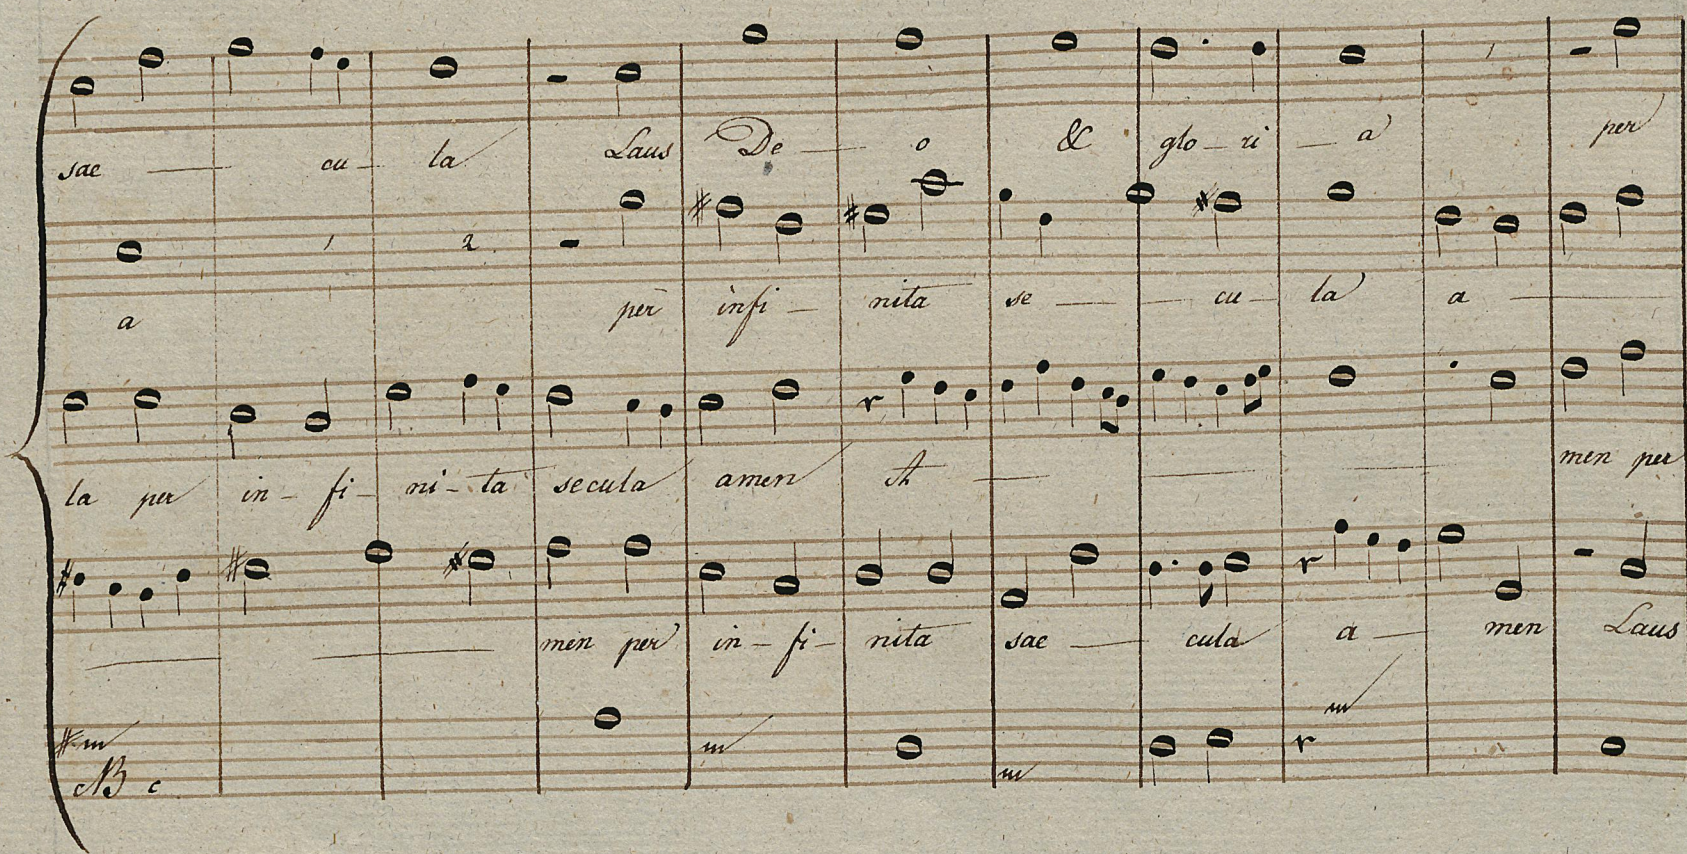 sae — cu — la Laus De — o & glo — ri — a per
a per infi — nita se — cu — la a —
la per in — fi — ni — ta secula amen A —
men per in — fi — nita sae — cula a — men Laus
NB c